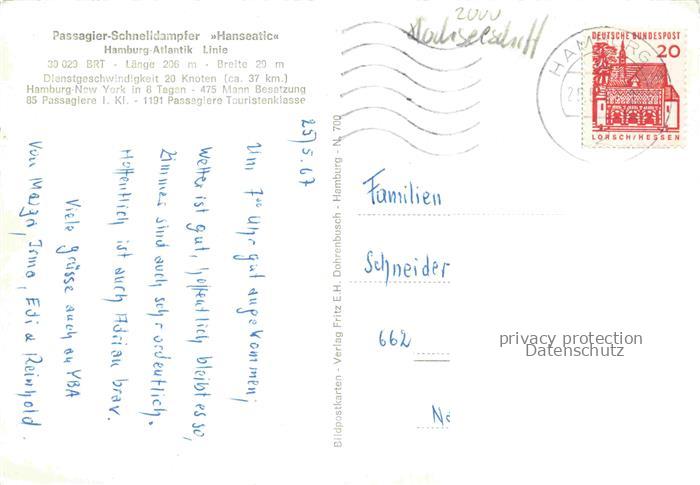 Passagier-Schnelldampfer »Hanseatic«
Hamburg-Atlantik Linie
30 029 BRT - Länge 206 m - Breite 29 m
Dienstgeschwindigkeit 20 Knoten (ca. 37 km.)
Hamburg-New York in 8 Tagen - 475 Mann Besatzung
85 Passagiere I. Kl. - 1191 Passagiere Touristenklasse
25/5.67
Um 7⁰⁰ Uhr gut angekommen;
Wetter ist gut, hoffentlich bleibt es so,
Zimmer sind auch sehr ordentlich.
Hoffentlich ist auch Adrian brav.
Viele Grüsse auch an YBA
Von Margi, Irma, Edi & Reinhold.
Bildpostkarten - Verlag Fritz E.H. Dohrenbusch - Hamburg - N. 700
2000
Hochseeschiff
HAMBURG
DEUTSCHE BUNDESPOST
20
LORSCH/HESSEN
Familien
Schneider
662
privacy protection
Datenschutz